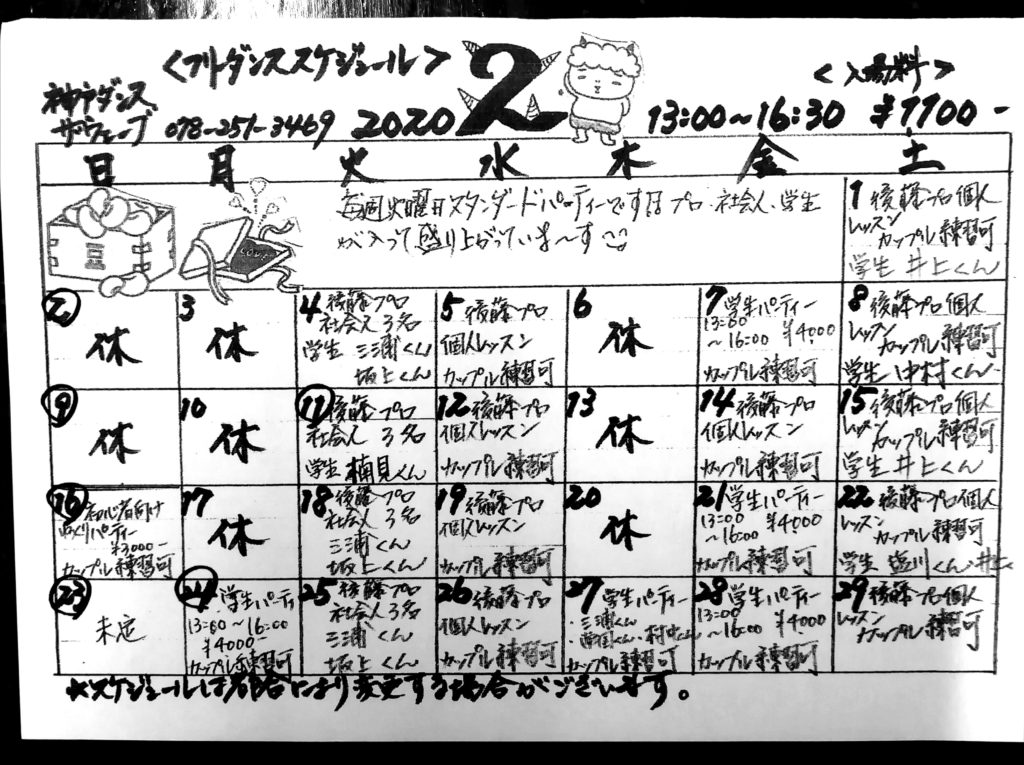 <フリーダンススケジュール>
2
<入場料>
神戸ダンス
ザウェーブ 078-251-3469 2020
13:00~16:30 ¥1100-
日 月 火 水 木 金 土
豆
LOVE
毎週火曜日スタンダードパーティーです プロ・社会人・学生
が入って盛り上がっていま~す
1 後藤プロ個人
レッスン
カップル練習可
学生 井上くん
2
休
3
休
4 後藤プロ
社会人 3名
学生 三浦くん
坂上くん
5 後藤プロ
個人レッスン
カップル練習可
6
休
7 学生パーティー
13:00
~16:00 ¥4000
カップル練習可
8 後藤プロ個人
レッスン
カップル練習可
学生 中村くん
9
休
10
休
11 後藤プロ
社会人 3名
学生 楠見くん
12 後藤プロ
個人レッスン
カップル練習可
13
休
14 後藤プロ
個人レッスン
カップル練習可
15 後藤プロ個人
レッスン
カップル練習可
学生 井上くん
16 初心者向け
パーティー
¥3000-
カップル練習可
17
休
18 後藤プロ
社会人 3名
三浦くん
坂上くん
19 後藤プロ
個人レッスン
カップル練習可
20
休
21 学生パーティー
13:00
~16:00 ¥4000
カップル練習可
22 後藤プロ個人
レッスン
カップル練習可
学生 塩川くん 井上
23
未定
24 ・学生パーティ
13:00~16:00
¥4000-
カップル練習可
25 後藤プロ
社会人3名
三浦くん
坂上くん
26 後藤プロ
個人レッスン
カップル練習可
27 学生パーティー
・三浦くん
くん・村中くん
カップル練習可
28 学生パーティー
13:00
~16:00 ¥4000
カップル練習可
29 後藤プロ個人
レッスン
カップル練習可
★スケジュールは都合により変更する場合がございます。